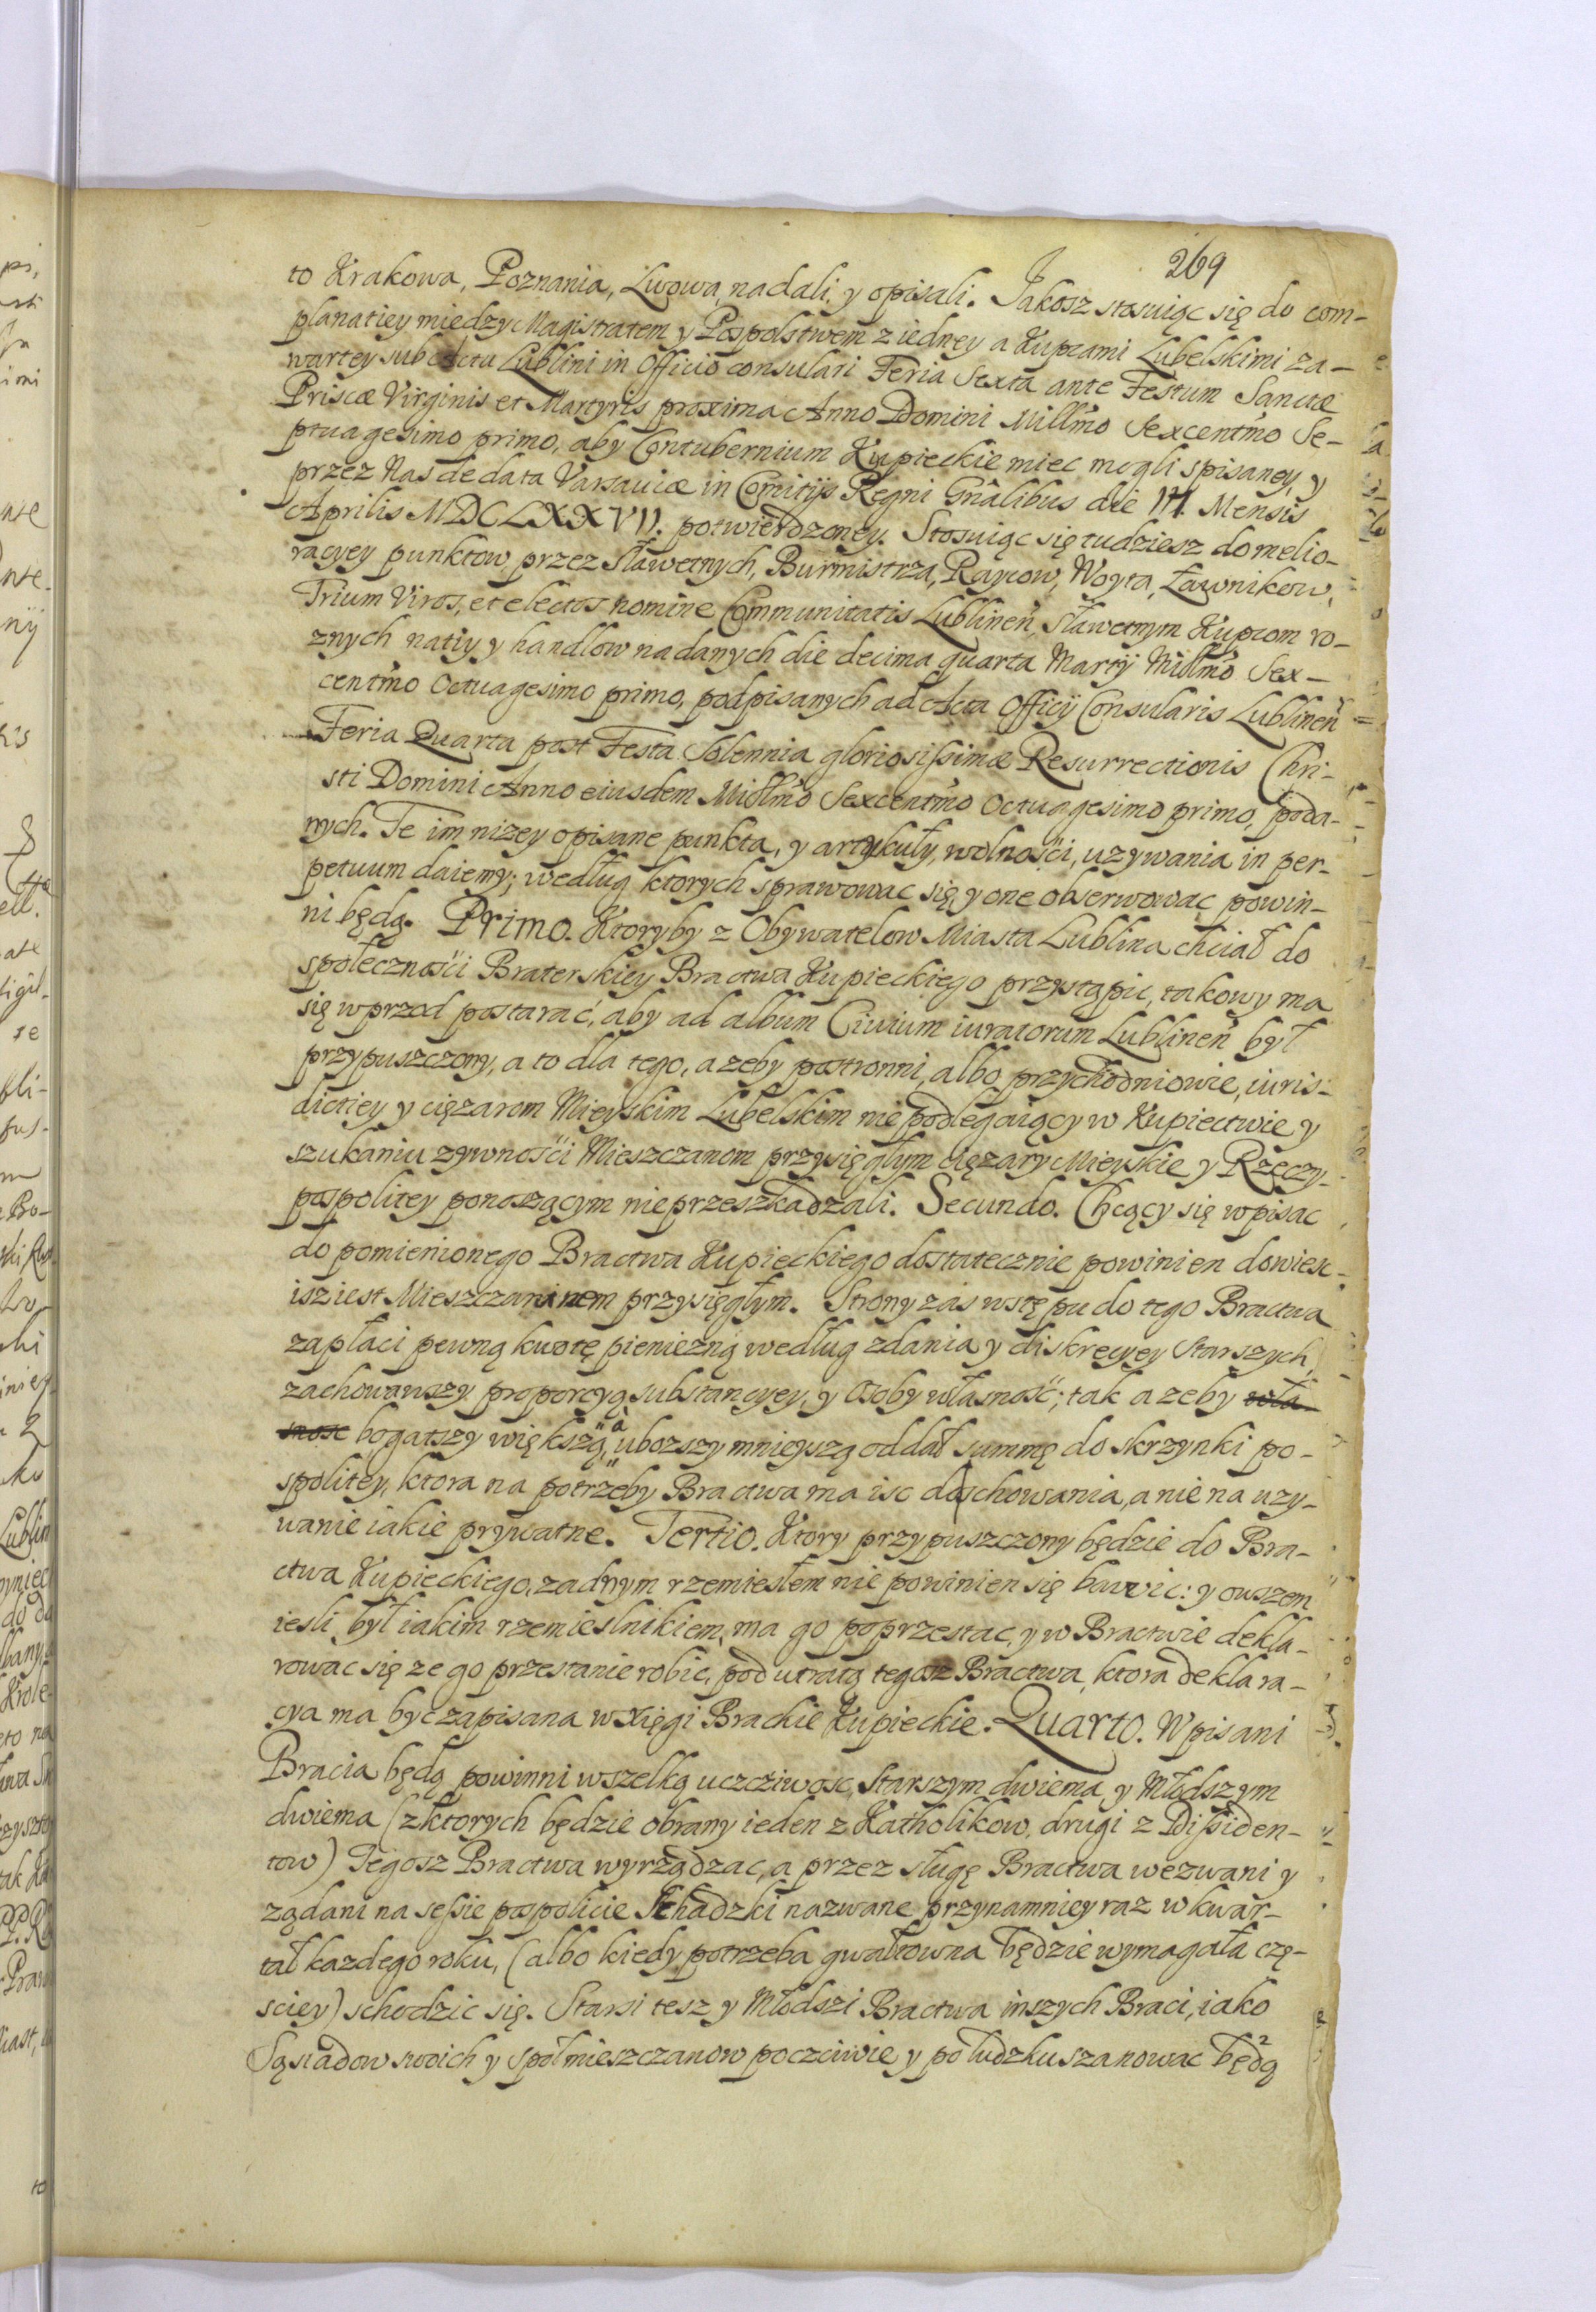 269
to Krakowa, Poznania, Lwowa, nadali, y opisali. Jakosz stosuiąc się do com-
planatiey między Magistratem y Pospolstwem z iedney a Kupcami Lubelskimi za-
wartey sub Actu Lublini in Officio consulari Feria Sexta ante Festum Sanctæ
Priscæ Virginis et Martyris proxima Anno Domini Millmo Sexcentmo Se-
ptuagesimo primo, aby Contubernium Kupieckie miec mogli spisaney, y
przez Nas de data Varsaviæ in Comitijs Regni Gnâlibus die Mensis
Aprilis MDCLXXVII. potwierdzoney. Stosuiąc się tudziesz do melio-
racyey punktow przez Sławetnych, Burmistrza, Raycow, Woyta, Ławnikow,
Trium Viros, et electos nomine Communitatis Lublineñ, Sławetnym Kupcom ro-
znych natiy y handlow nadanych die decima quarta Martij Millmo Sex-
centmo Octuagesimo primo, podpisanych ad Acta Officij Consularis Lublineñ
Feria Quarta post Festa Solennia gloriosissimæ Resurrectionis Chri-
sti Domini Anno eiusdem Millmo Sexcentmo Octuagesimo primo, poda-
nych. Te im nizey opisane punkta, y artykuły, wolności, uzywania in per-
petuum daiemy; według ktorych sprawowac się, y one obserwowac powin-
ni będą. Primo. Ktoryby z Obywatelow Miasta Lublina chciał do
społeczności Braterskiey Bractwa Kupieckiego przystąpic, takowy ma
się wprzod postarać, aby ad album Civium iuratorum Lublineñ był
przypuszczony, a to dla tego, azeby postronni, albo przychodniowie, iuris-
dictiey y cięzarom Mieyskim Lubelskim nie podlegaiący w Kupiectwie y
szukaniu zywności Mieszczanom przysięgłym cięzary Mieyskie y Rzeczy-
pospolitey ponoszącym nie przeszkadzali. Secundo. Chcący się wpisac
do pomienionego Bractwa Kupieckiego dostatecznie powinien dowiesc
isz iest Mieszczaninem przysięgłym. Strony zas wstępu do tego Bractwa
zapłaci pewną kwotę pieniezną według zdania y diskrecyey Starszych,
zachowawszy proporcyą substancyey, y Osoby własność; tak azeby wła-
snosc bogatszy większą, a ubozszy mnieyszą oddał summę do skrzynki po-
spolitey, ktora na potrzeby Bractwa ma isc do schowania, a nie na uzy-
wanie iakie prywatne. Tertio. Ktory przypuszczony będzie do Bra-
ctwa Kupieckiego, zadnym rzemiesłem nie powinien się bawic: y owszem
iesli był iakim rzemieslnikiem, ma go poprzestac, y w Bractwie dekla-
rowac się ze go przestanie robic, pod utratą tegosz Bractwa, ktora deklara-
cya ma byc zapisana w Xięgi Brackie Kupieckie. Quarto. Wpisani
Bracia będą powinni wszelką uczciwosc, Starszym dwiema, y Młodszym
dwiema (z ktorych będzie obrany ieden z Katholikow, drugi z Dissiden-
tow) Tegosz Bractwa wyrządzac, a przez sługę Bractwa wezwani y
ządani na sessie pospolicie Schadzki nazwane przynamniey raz w kwar-
tał kazdego roku, (albo kiedy potrzeba gwałtowna będzie wymagała czę-
sciey) schodzic się. Starsi tesz y Młodszi Bractwa inszych Braci, iako
Sąsiadow swoich y społmieszczanow poczciwie y po ludzku szanowac będą